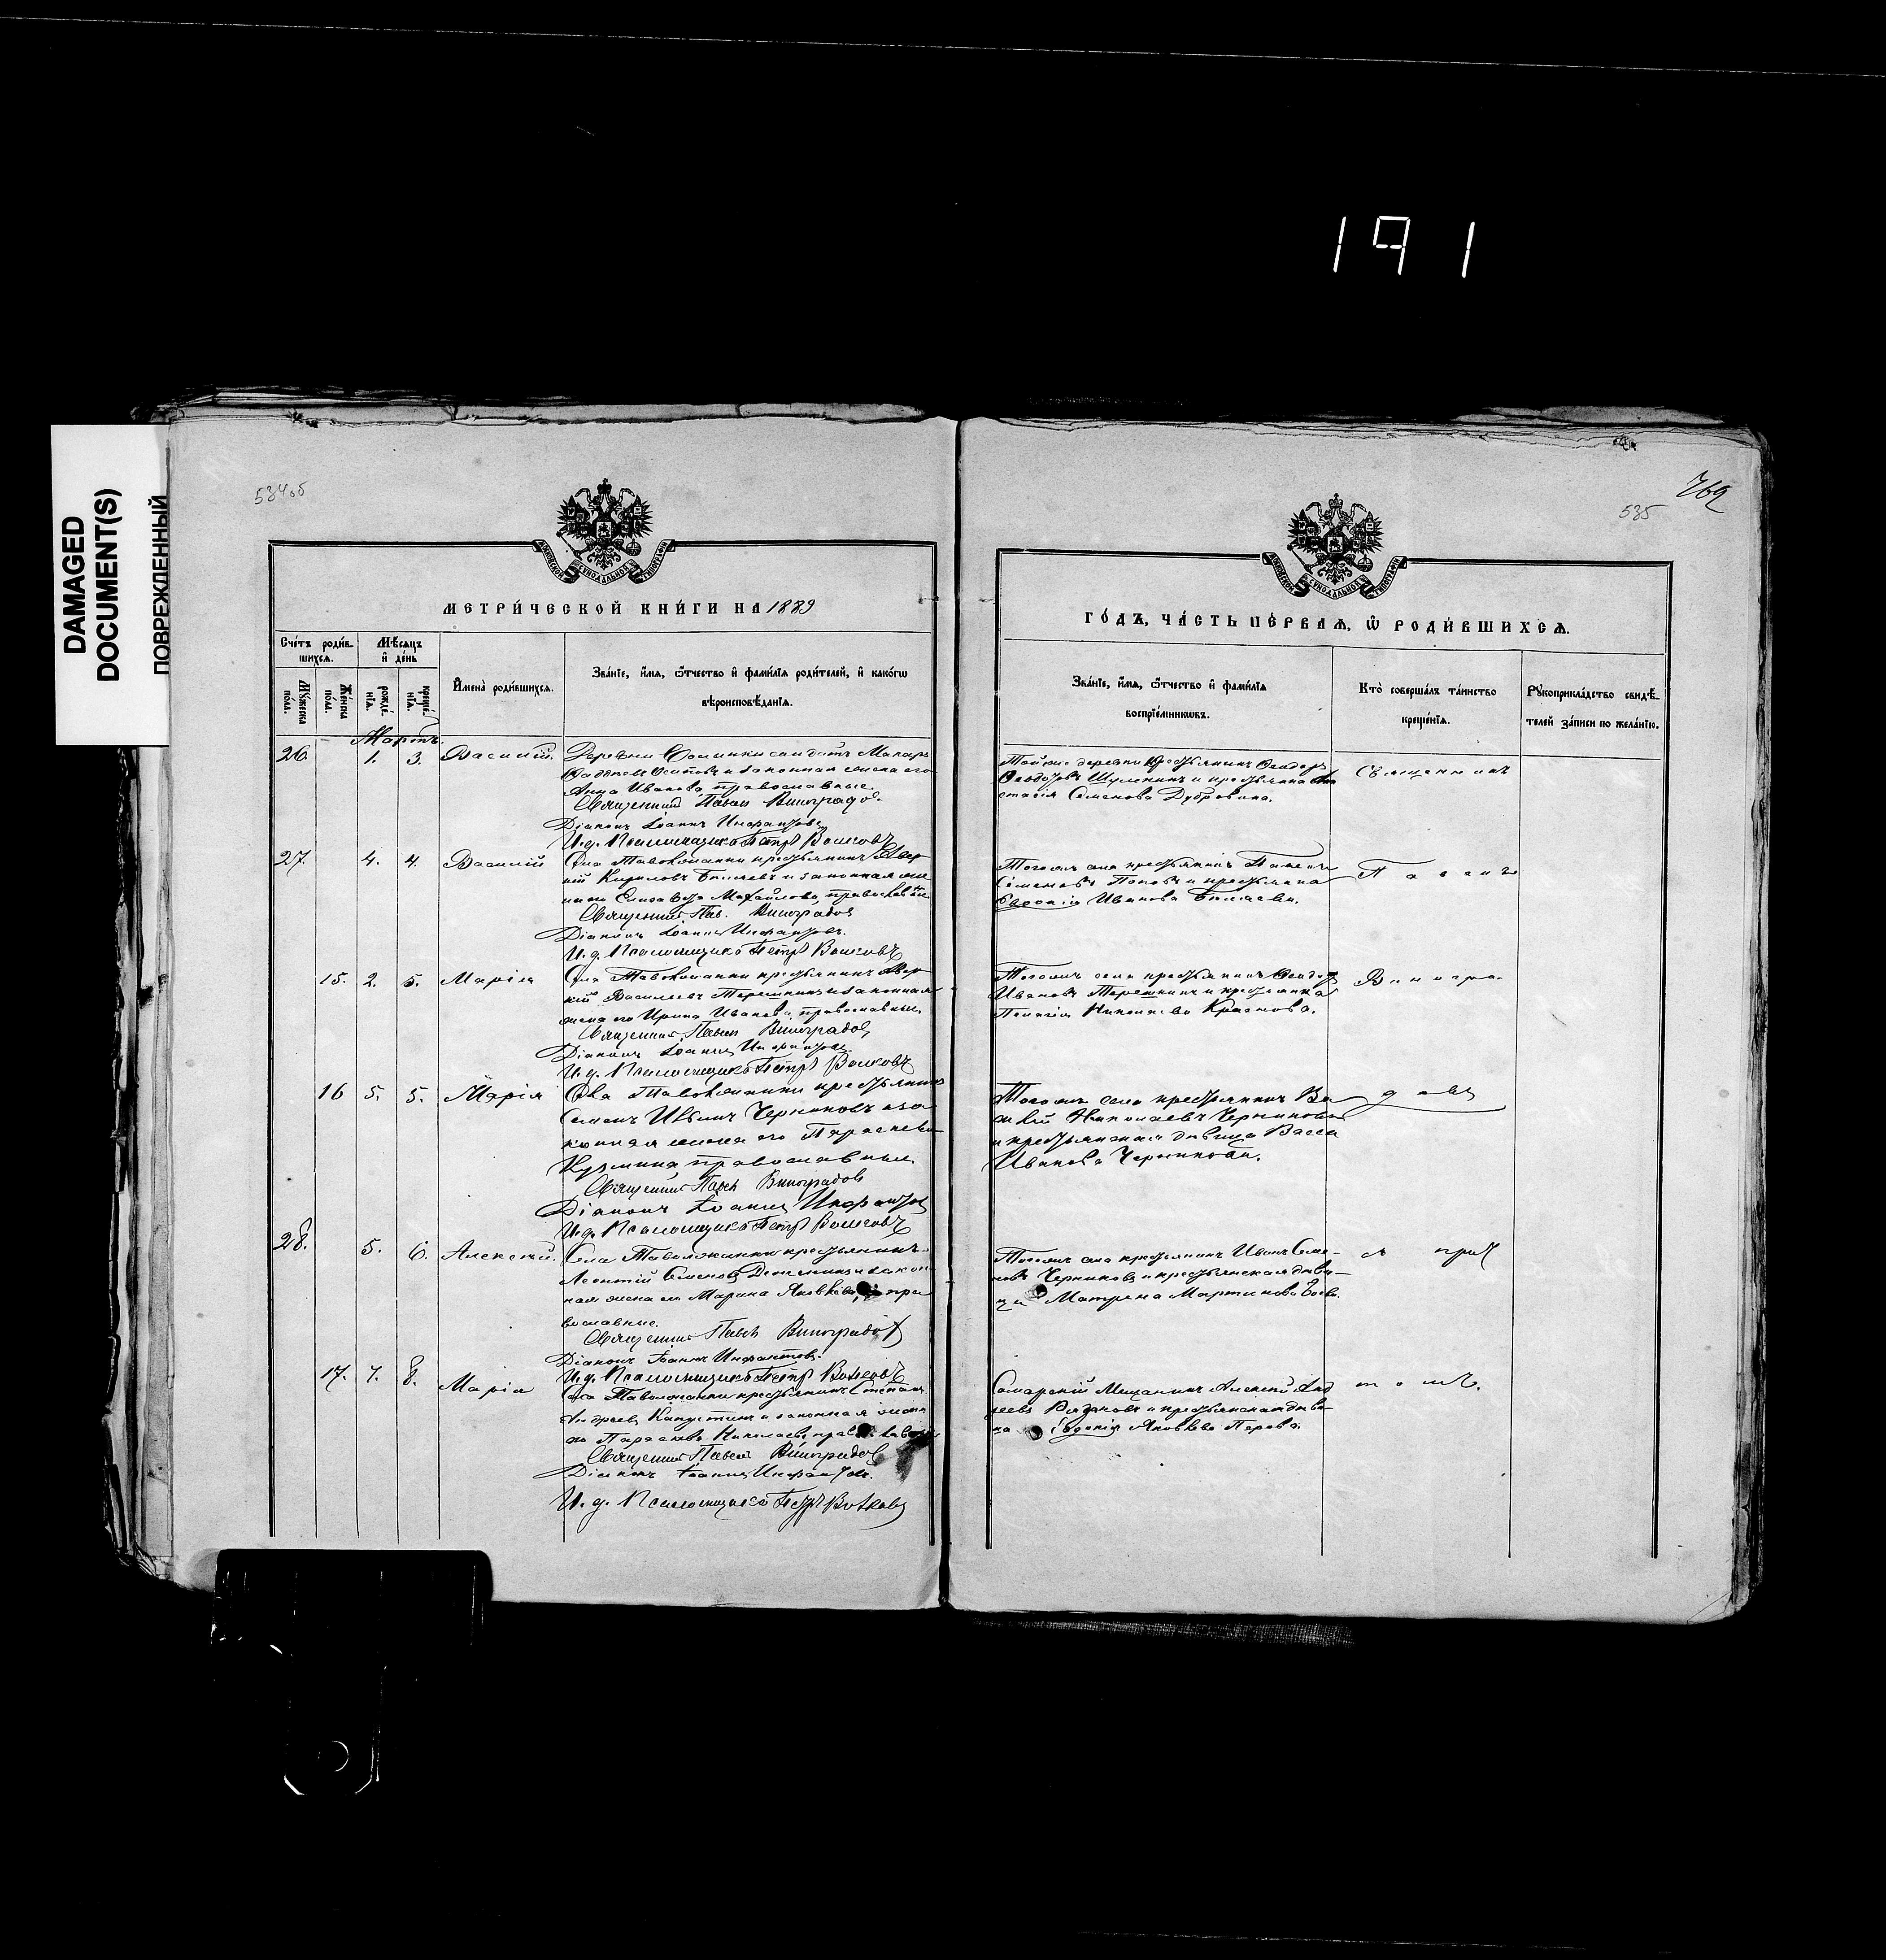 191
DAMAGED
DOCUMENT(S)
ПОВРЕЖДЕННЫЙ
534об
769
535
МЕТРИ́ЧЕСКОЙ КНИ́ГИ НА 1889
Сче́тъ роди́в-
шихсѧ.
Мѣ́сѧцъ
и҆ де́нь
Мꙋ́жеска
по́ла.
Же́нска
по́ла.
рожде́-
нїѧ.
креще́-
нїѧ.
И҆мена̀ роди́вшихсѧ.
Зва́нїе, и҆́мѧ, ѻ҆́тчество и҆ фами́лїѧ роди́телей, и҆ како́гѡ
вѣроисповѣ́данїѧ.
Мартъ.
26. 1. 3. Василій. Деревни солдатъ Макаръ
Осиповъ и законная жена его
Анна Иванова, православные.
Священникъ Павелъ Виноградовъ
Діаконъ Іоаннъ Инфантовъ
И. д. Псаломщика Петръ Волковъ
27. 4. 4. Василій Села Таволжанки крестьянинъ
Кириловъ Беляевъ и законная же
на его Елизавета Михайлова, православные.
Священникъ Пав. Виноградовъ
Діаконъ Іоаннъ Инфантовъ.
И. д. Псаломщика Петръ Волковъ
15. 2. 5. Марія Села Таволжанки крестьянинъ Авер-
кій Васильевъ Терешкинъ и законная
жена его Ирина Иванова, православные.
Священникъ Павелъ Виноградовъ
Діаконъ Іоаннъ Инфантовъ
И. д. Псаломщика Петръ Волковъ
16 5. 5. Марія Села Таволжанки крестьянинъ
Семенъ Ивановъ Черниковъ и за
конная жена его Параскева
Кузмина, православные
Священникъ Павелъ Виноградовъ
Діаконъ Іоаннъ Инфантовъ
И. д. Псаломщика Петръ Волковъ
28. 5. 6. Алексѣй. Села Таволжанки крестьянинъ
Леонтій Семеновъ и закон
ная жена его Марина Яковлева, пра
вославные.
Священникъ Павелъ Виноградовъ
Діаконъ Іоаннъ Инфантовъ.
И. д. Псаломщика Петръ Волковъ
17. 7. 8. Марія Села Таволжанки крестьянинъ Степанъ
Андреевъ Капустинъ и законная жена
его Параскева Николаева,
Священникъ Павелъ Виноградовъ
Діаконъ Іоаннъ Инфантовъ.
И. д. Псаломщика Петръ Волковъ
ГО́ДЪ, ЧА́СТЬ ПЕ́РВАѦ, Ѽ РОДИ́ВШИХСѦ.
Зва́нїе, и҆́мѧ, ѻ҆́тчество и҆ фами́лїѧ
воспрїе́мникѡвъ.
Кто̀ соверша́лъ та́инство
креще́нїѧ.
Рꙋкоприкла́дство свидѣ́-
телей за́писи по жела́нїю.
Той же деревни крестьянинъ Ѳеодоръ
Ѳеодоровъ и крестьянка Ана
стасія Семенова Дубровина.
Священникъ
Тогожъ села крестьянинъ Павелъ
Семеновъ Поповъ и крестьянка
Евдокія Иванова Беляева.
Павелъ
Тогожъ села крестьянинъ Ѳеодоръ
Ивановъ Терешкинъ и крестьянка
Пелагія Николаева Краснова.
Виногра-
Тогожъ села крестьянинъ Ва
силій Николаевъ Черниковъ
и крестьянская дѣвица Васса
Иванова Черникова.
довъ
Тогожъ села крестьянинъ Иванъ Семе-
новъ Черниковъ и крестьянская дѣви-
ца Матрена Мартинова
съ прич
Самарскій Мѣщанинъ Алексѣй Анд
реевъ Рязановъ и крестьянская дѣви-
ца Евдокія Яковлева Перова.
томъ.